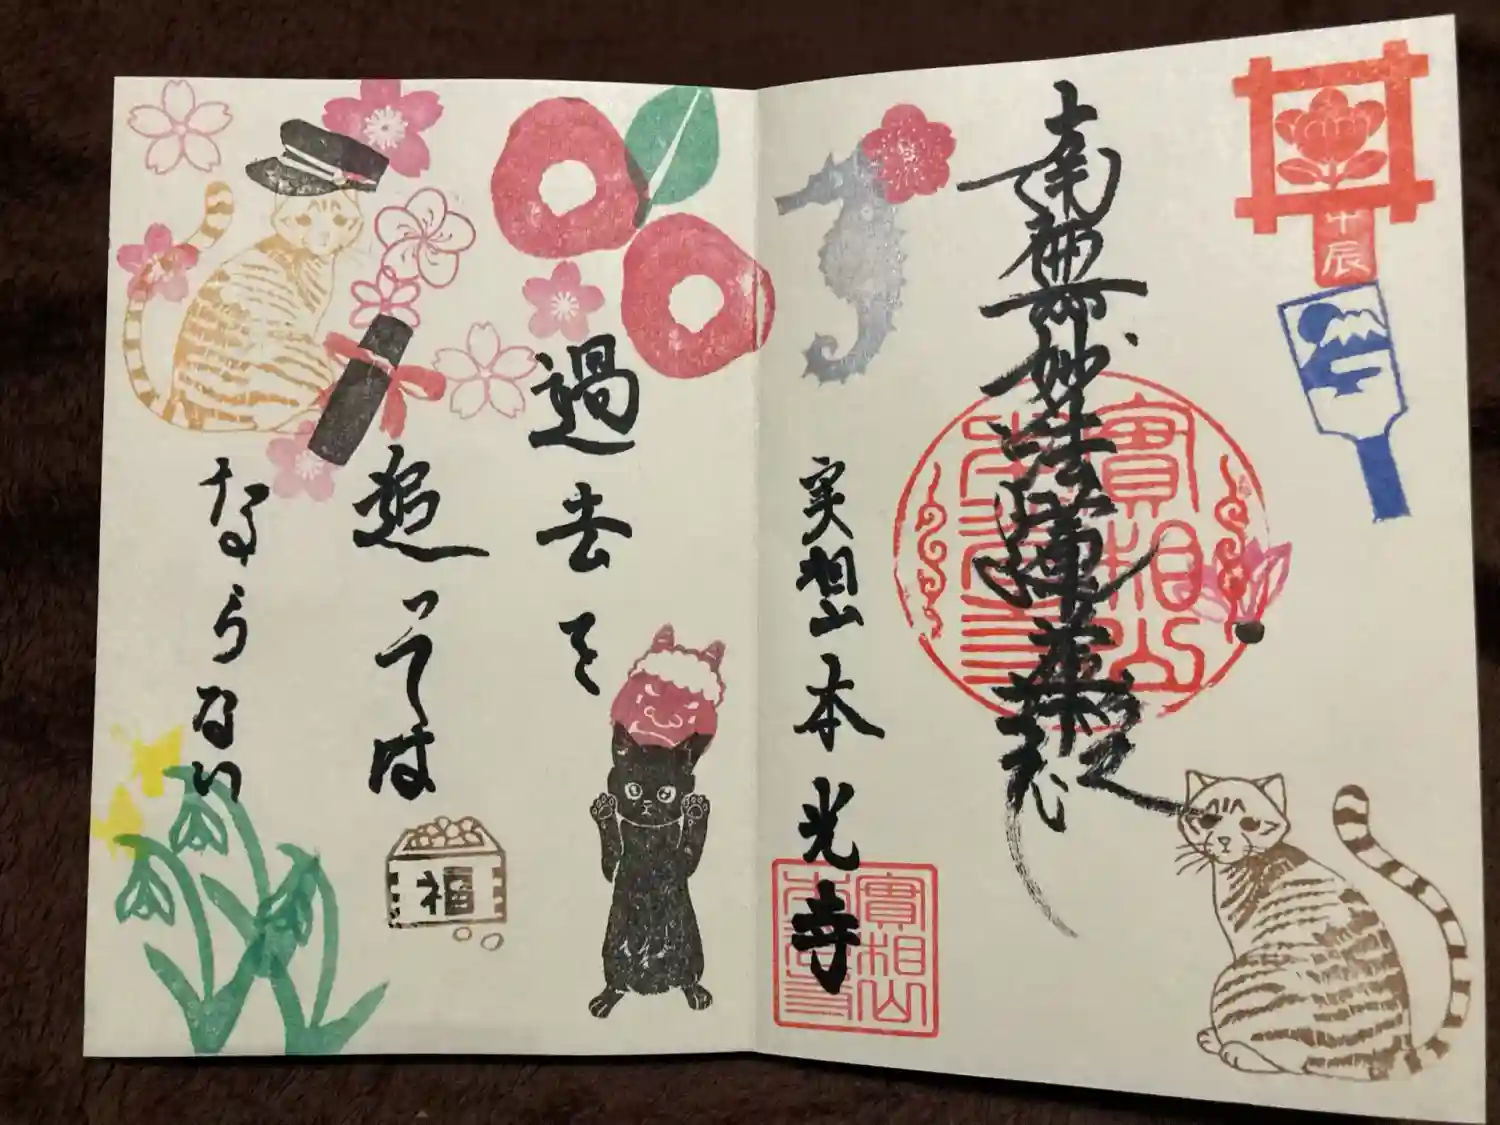 甲辰
南無妙法蓮華経
實相山
本光寺
実相山本光寺
實相山
本光寺
過去を
追っては
ならない
福